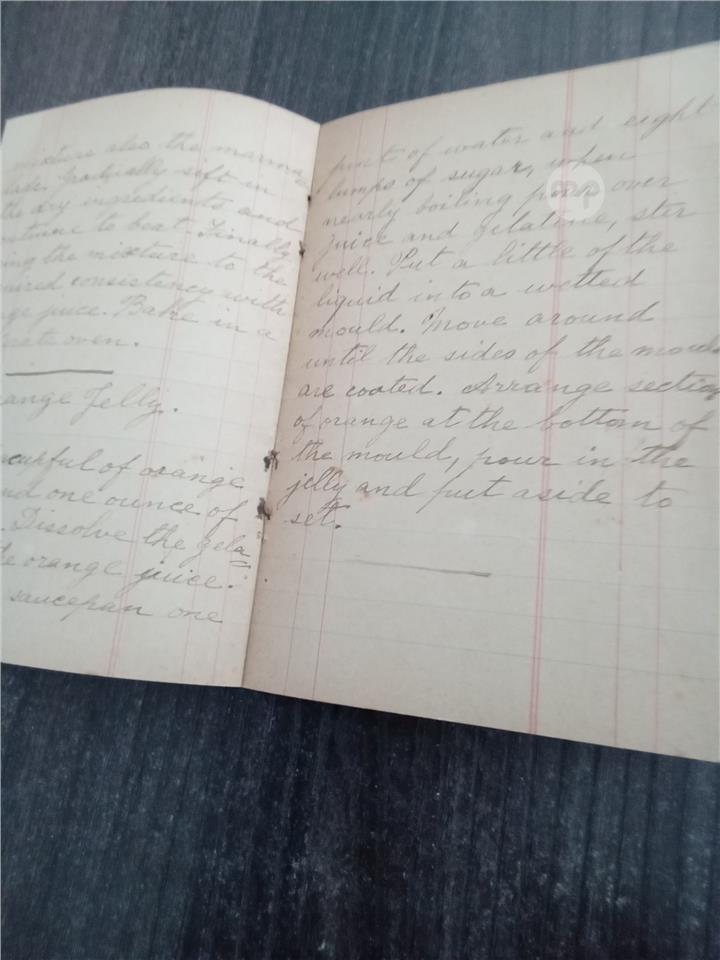 mixture also the marma
lade. Gradually sift in
the dry ingredients and
continue to beat. Finally
ing the mixture to the
uired consistency with
ge juice. Bake in a
erate oven.
ange Jelly.
cupful of orange
nd one ounce of
. Dissolve the gela=
e orange juice.
saucepan one
pint of water and eight
lumps of sugar, when
nearly boiling pour over
juice and gelatine, stir
well. Put a little of the
liquid into a wetted
mould. Move around
until the sides of the mould
are coated. Arrange section
of orange at the bottom of
the mould, pour in the
jelly and put aside to
set.